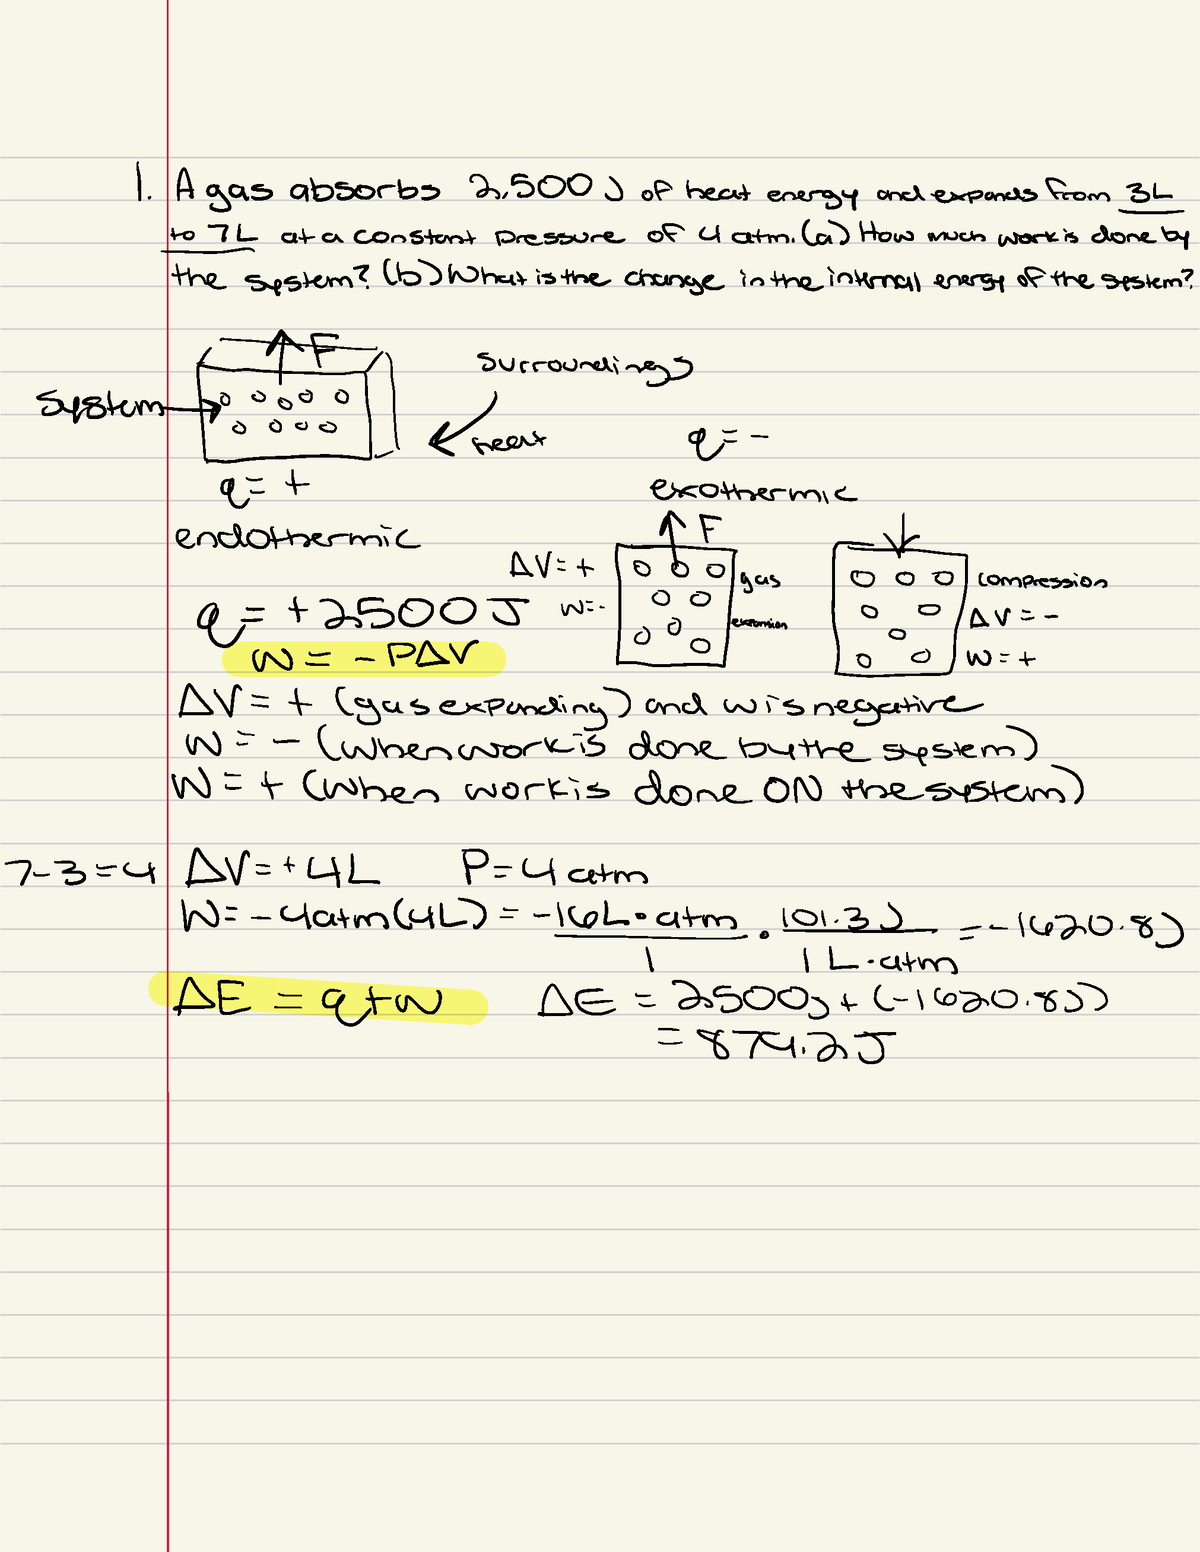 1. A gas absorbs 2,500 J of heat energy and expands from 3L
to 7L at a constant pressure of 4 atm. (a) How much work is done by
the system? (b) What is the change in the internal energy of the system?
F
surroundings
system
heat
q = -
q = +
exothermic
endothermic
F
ΔV = +
gas
compression
q = +2500 J
w = -
expansion
ΔV = -
w = -PΔV
w = +
ΔV = + (gas expanding) and w is negative
w = - (when work is done by the system)
w = + (when work is done ON the system)
7-3=4 ΔV = +4L P = 4 atm
W = -4atm(4L) = -16L·atm/1 · 101.3J/1 L·atm = -1620.8J
ΔE = q+w ΔE = 2500J + (-1620.8J)
= 874.2J